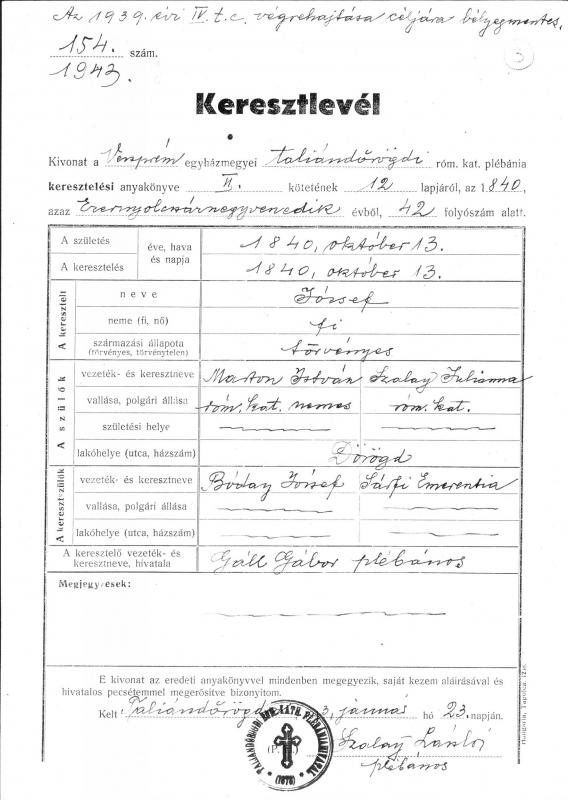 Az 1939. évi IV. t. c. végrehajtása céljára bélyegmentes.
3
154. szám.
1943.
Keresztlevél
Kivonat a Veszprém egyházmegyei taliándörögdi róm. kat. plébánia
keresztelési anyakönyve II. kötetének 12 lapjáról, az 1840,
azaz Ezernyolcszáznegyvenedik évből, 42 folyószám alatt.
A születés éve, hava és napja 1840, október 13.
A keresztelés 1840, október 13.
A keresztelt
neve József
neme (fi, nő) fi
származási állapota (törvényes, törvénytelen) törvényes
A szülők
vezeték- és keresztneve Marton István Szalay Julianna
vallása, polgári állása róm. kat. nemes róm. kat.
születési helye
lakóhelye (utca, házszám) Dörögd
A keresztszülők
vezeték- és keresztneve Bóday József Sárfi Emerentia
vallása, polgári állása
lakóhelye (utca, házszám)
A keresztelő vezeték- és keresztneve, hivatala Gáll Gábor plébános
Megjegyzések:
E kivonat az eredeti anyakönyvvel mindenben megegyezik, saját kezem aláirásával és
hivatalos pecsétemmel megerősitve bizonyitom.
Kelt Taliándörögd 3, január hó 23. napján.
(P. H.) Szalay László
plébános
(1876)
Hangolla, Tapolca